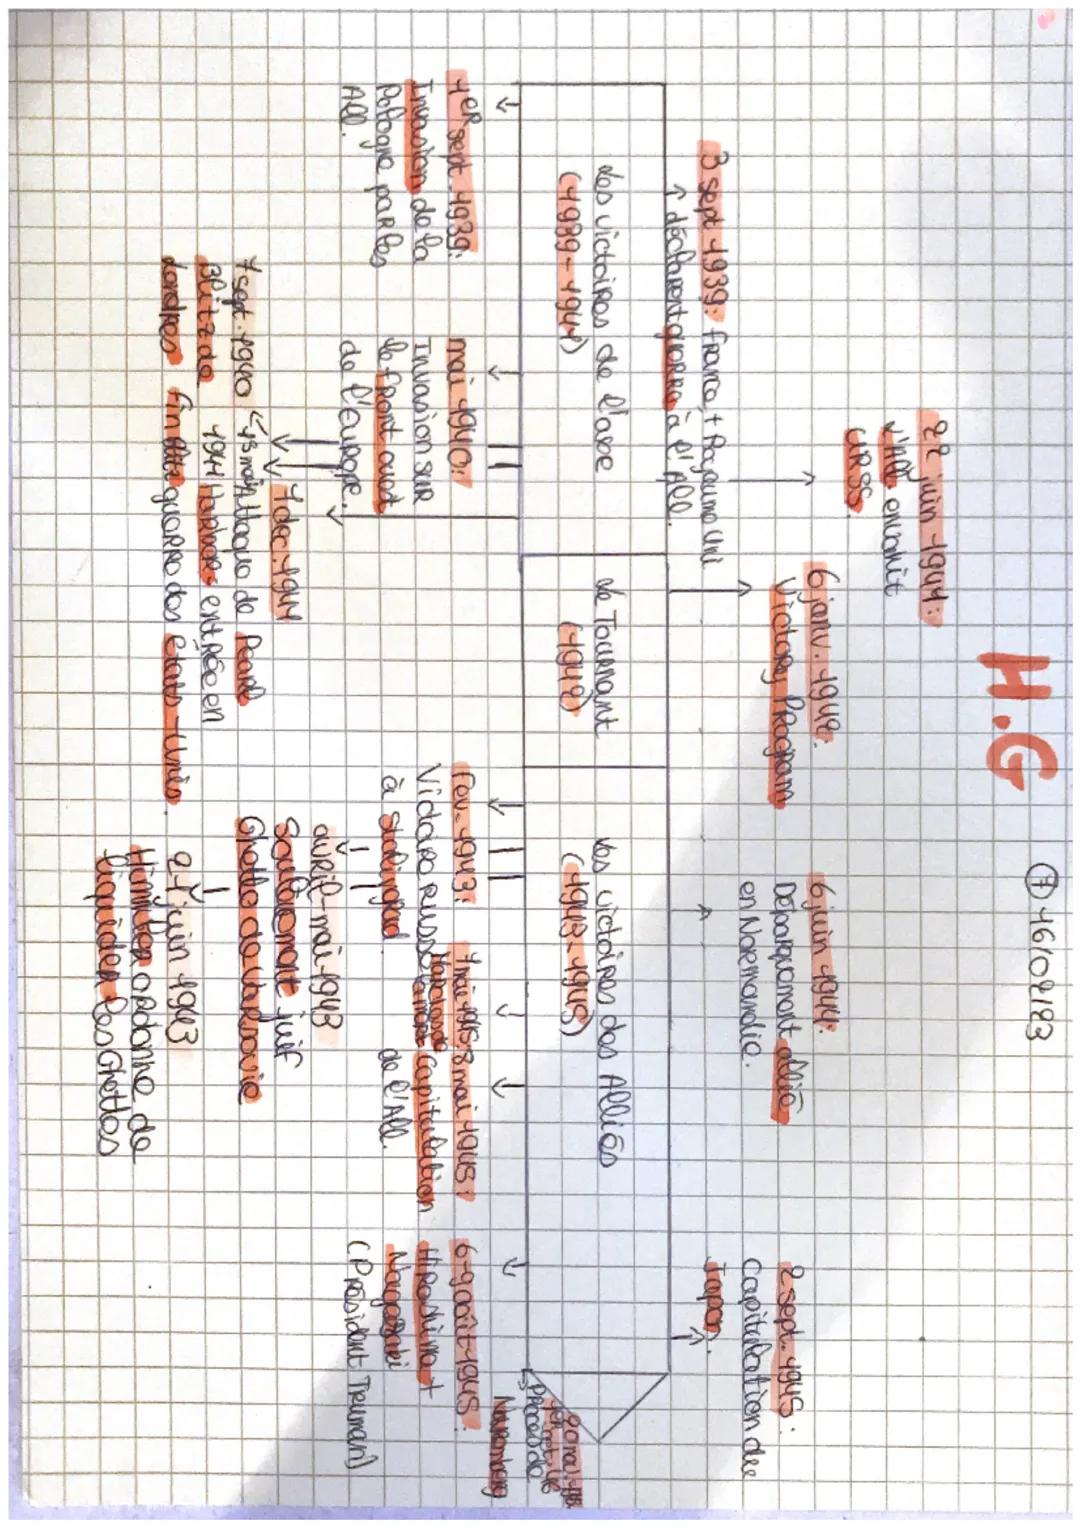 H.G
22 juin 1941:
L'All. envahit
URSS.
3 sept 1939: France + Royaume Uni
déclarent guerre à l'All.
6 janv. 1942:
Victory Program
6 juin 1944:
Débarquement allié
en Normandie.
2 sept. 1945:
Capitulation du
Japon.
Les victoires de l'axe
(1939-1941)
Le Tournant
(1942)
Les victoires des Alliés
(1943-1945)
Procès de
Nuremberg
1er sept. 1939:
Invasion de la
Pologne par les
All.
mai 1940:
Invasion sur
le front ouest
de l'Europe.
7 sept. 1940
Blitz de
Londres
7 dec. 1941
Attaque de Pearl
Harbor entrée en
guerre des Etats-Unis.
Fev. 1943:
Victoire russe
à Stalingrad
avril-mai 1943
Soulèvement juif
Ghetto de Varsovie
21 juin 1943
Himmler ordonne de
liquider les Ghettos
8 mai 1945:
Capitulation
de l'All.
6-9 août 1945:
Hiroshima +
Nagasaki
(Président Truman)